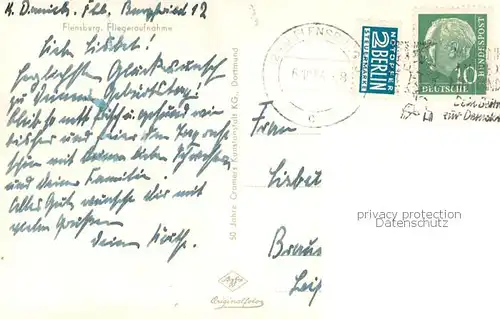 Flensburg. Fliegeraufnahme
Liebe Lisbet!
Herzlichsten Glückwunsch
zu Deinem Geburtstag!
bleib so nett frisch u. gesund wie
bisher und feier den Tag recht
schön mit Deiner lieben Schwester
und Deiner Familie.
Alles Gute wünsche Dir mit
vielen Grüßen
Deine
50 Jahre Cramers Kunstanstalt KG., Dortmund
Agfa
Originalfoto
NOTOPFER
2 BERLIN
STEUERMARKE
DEUTSCHE
BUNDESPOST
10
Frau
Lisbet
Braus
Leip
privacy protection
Datenschutz